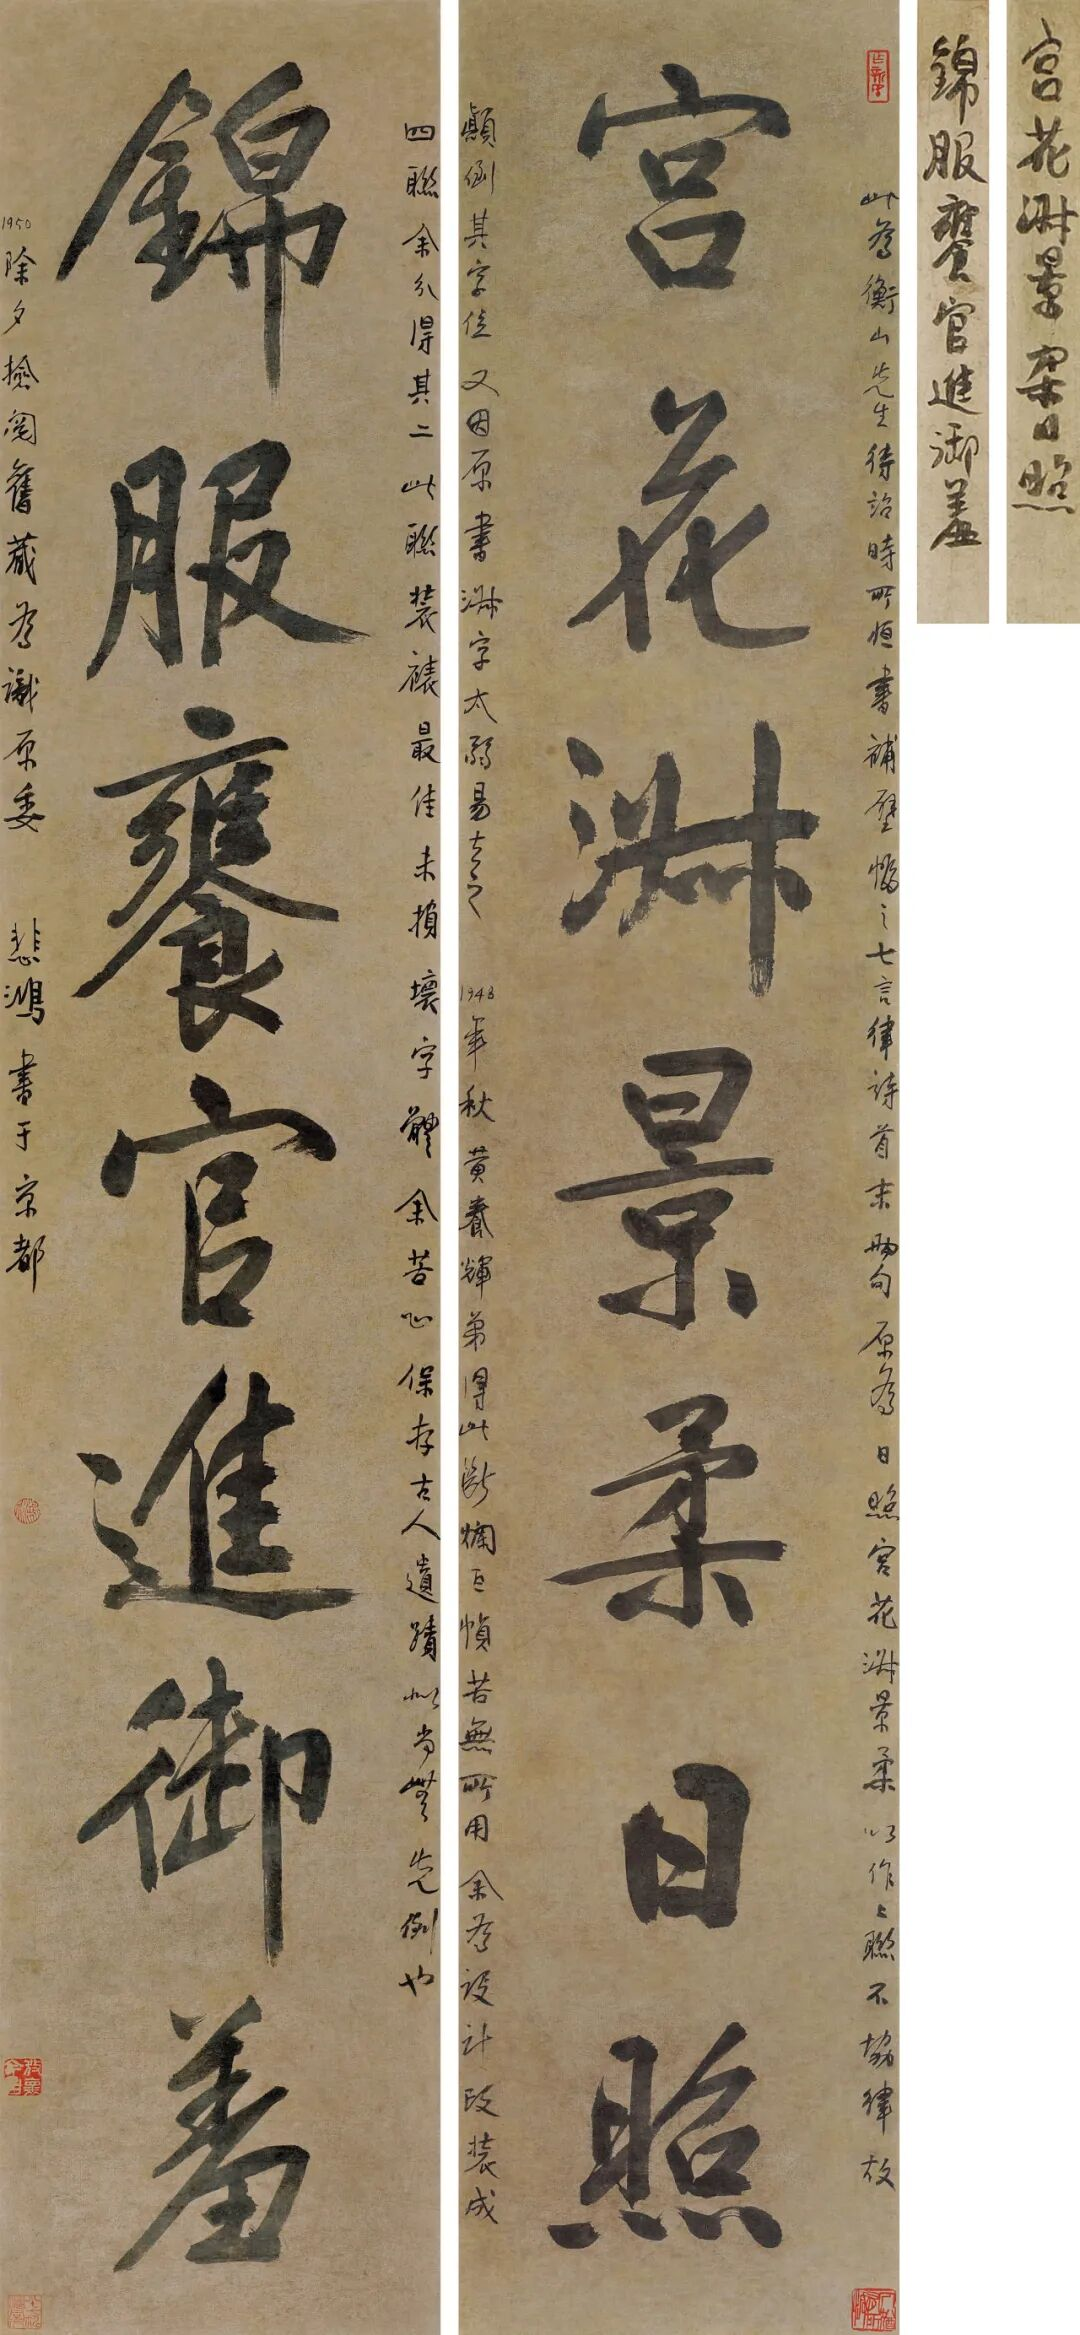 宮花淋景柔日照
錦服饔官進御羞
此為衡山先生待詔時所恆書補壁 之七言律詩首末兩句原為日照宮花淋景柔以作上聯不協律故
顛倒其字位又因原書淋字太弱易去之
1948年秋黃養輝弟得此斷爛巨幀若無所用余為設計改裝成
四聯余分得其二此聯裝裱最佳未損壞字體余苦心保存古人遺蹟似尚無先例也
1950除夕撿閱舊藏為識原委 悲鴻書于京都
錦服饔官進御羞
宮花淋景柔日照